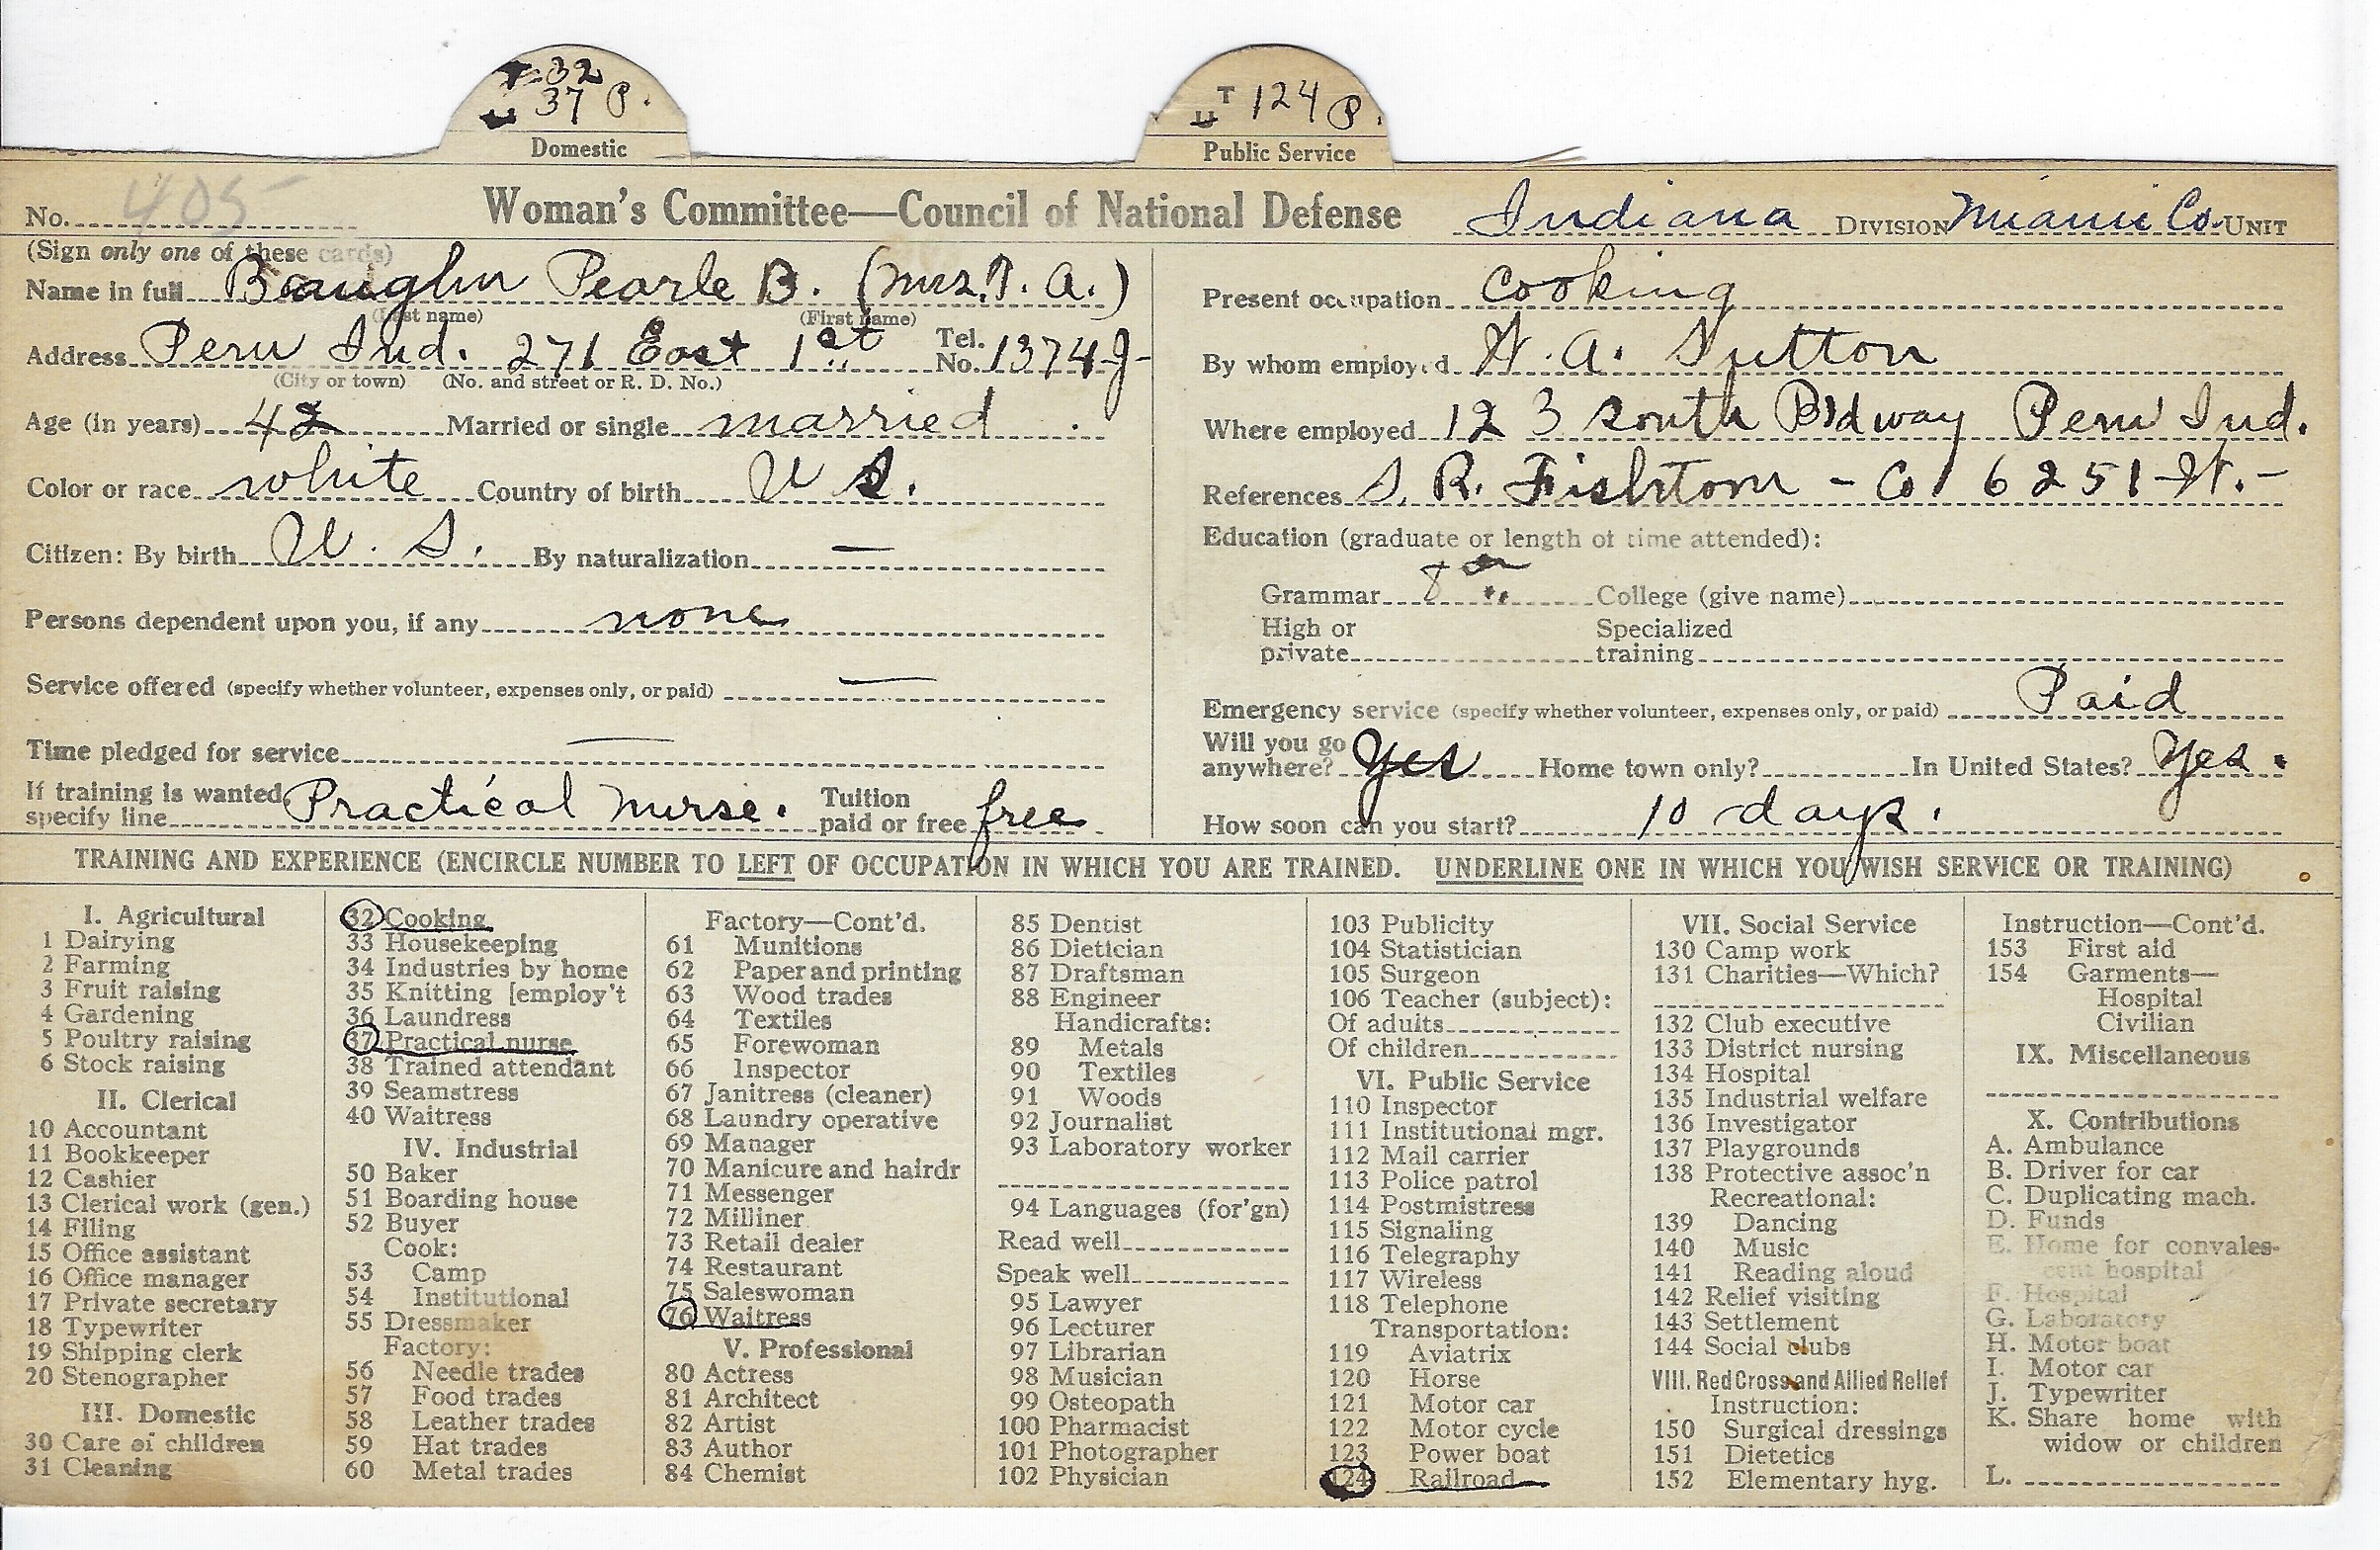 32
37 P.
Domestic
T 124 P.
U
Public Service
No. 405
Woman's Committee—Council of National Defense Indiana DIVISION Miami Co. UNIT
(Sign only one of these cards)
Name in full Baughn Pearle B. (Mrs. T. A.)
(Last name) (First name)
Address Peru Ind. 271 East 1st Tel. No. 1374-J-
(City or town) (No. and street or R. D. No.)
Age (in years) 42 Married or single married
Color or race white Country of birth U S.
Citizen: By birth U. S. By naturalization —
Persons dependent upon you, if any none
Service offered (specify whether volunteer, expenses only, or paid) —
Time pledged for service —
If training is wanted specify line Practical nurse. Tuition paid or free free
Present occupation cooking
By whom employed A. Sutton
Where employed 123 south Bdway Peru Ind.
References S. R. 6251
Education (graduate or length of time attended):
Grammar 8 College (give name)
High or private Specialized training
Emergency service (specify whether volunteer, expenses only, or paid) Paid
Will you go anywhere? Yes Home town only? In United States? Yes.
How soon can you start? 10 days.
TRAINING AND EXPERIENCE (ENCIRCLE NUMBER TO LEFT OF OCCUPATION IN WHICH YOU ARE TRAINED. UNDERLINE ONE IN WHICH YOU WISH SERVICE OR TRAINING)
I. Agricultural
1 Dairying
2 Farming
3 Fruit raising
4 Gardening
5 Poultry raising
6 Stock raising
II. Clerical
10 Accountant
11 Bookkeeper
12 Cashier
13 Clerical work (gen.)
14 Filing
15 Office assistant
16 Office manager
17 Private secretary
18 Typewriter
19 Shipping clerk
20 Stenographer
III. Domestic
30 Care of children
31 Cleaning
32 Cooking
33 Housekeeping
34 Industries by home
35 Knitting [employ't
36 Laundress
37 Practical nurse
38 Trained attendant
39 Seamstress
40 Waitress
IV. Industrial
50 Baker
51 Boarding house
52 Buyer
Cook:
53 Camp
54 Institutional
55 Dressmaker
Factory:
56 Needle trades
57 Food trades
58 Leather trades
59 Hat trades
60 Metal trades
Factory—Cont'd.
61 Munitions
62 Paper and printing
63 Wood trades
64 Textiles
65 Forewoman
66 Inspector
67 Janitress (cleaner)
68 Laundry operative
69 Manager
70 Manicure and hairdr
71 Messenger
72 Milliner
73 Retail dealer
74 Restaurant
75 Saleswoman
76 Waitress
V. Professional
80 Actress
81 Architect
82 Artist
83 Author
84 Chemist
85 Dentist
86 Dietician
87 Draftsman
88 Engineer
Handicrafts:
89 Metals
90 Textiles
91 Woods
92 Journalist
93 Laboratory worker
94 Languages (for'gn)
Read well
Speak well
95 Lawyer
96 Lecturer
97 Librarian
98 Musician
99 Osteopath
100 Pharmacist
101 Photographer
102 Physician
103 Publicity
104 Statistician
105 Surgeon
106 Teacher (subject):
Of adults
Of children
VI. Public Service
110 Inspector
111 Institutional mgr.
112 Mail carrier
113 Police patrol
114 Postmistress
115 Signaling
116 Telegraphy
117 Wireless
118 Telephone
Transportation:
119 Aviatrix
120 Horse
121 Motor car
122 Motor cycle
123 Power boat
124 Railroad
VII. Social Service
130 Camp work
131 Charities—Which?
132 Club executive
133 District nursing
134 Hospital
135 Industrial welfare
136 Investigator
137 Playgrounds
138 Protective assoc'n
Recreational:
139 Dancing
140 Music
141 Reading aloud
142 Relief visiting
143 Settlement
144 Social clubs
VIII. Red Cross and Allied Relief
Instruction:
150 Surgical dressings
151 Dietetics
152 Elementary hyg.
Instruction—Cont'd.
153 First aid
154 Garments—
Hospital
Civilian
IX. Miscellaneous
X. Contributions
A. Ambulance
B. Driver for car
C. Duplicating mach.
D. Funds
E. Home for convales-
cent hospital
F. Hospital
G. Laboratory
H. Motor boat
I. Motor car
J. Typewriter
K. Share home with
widow or children
L.